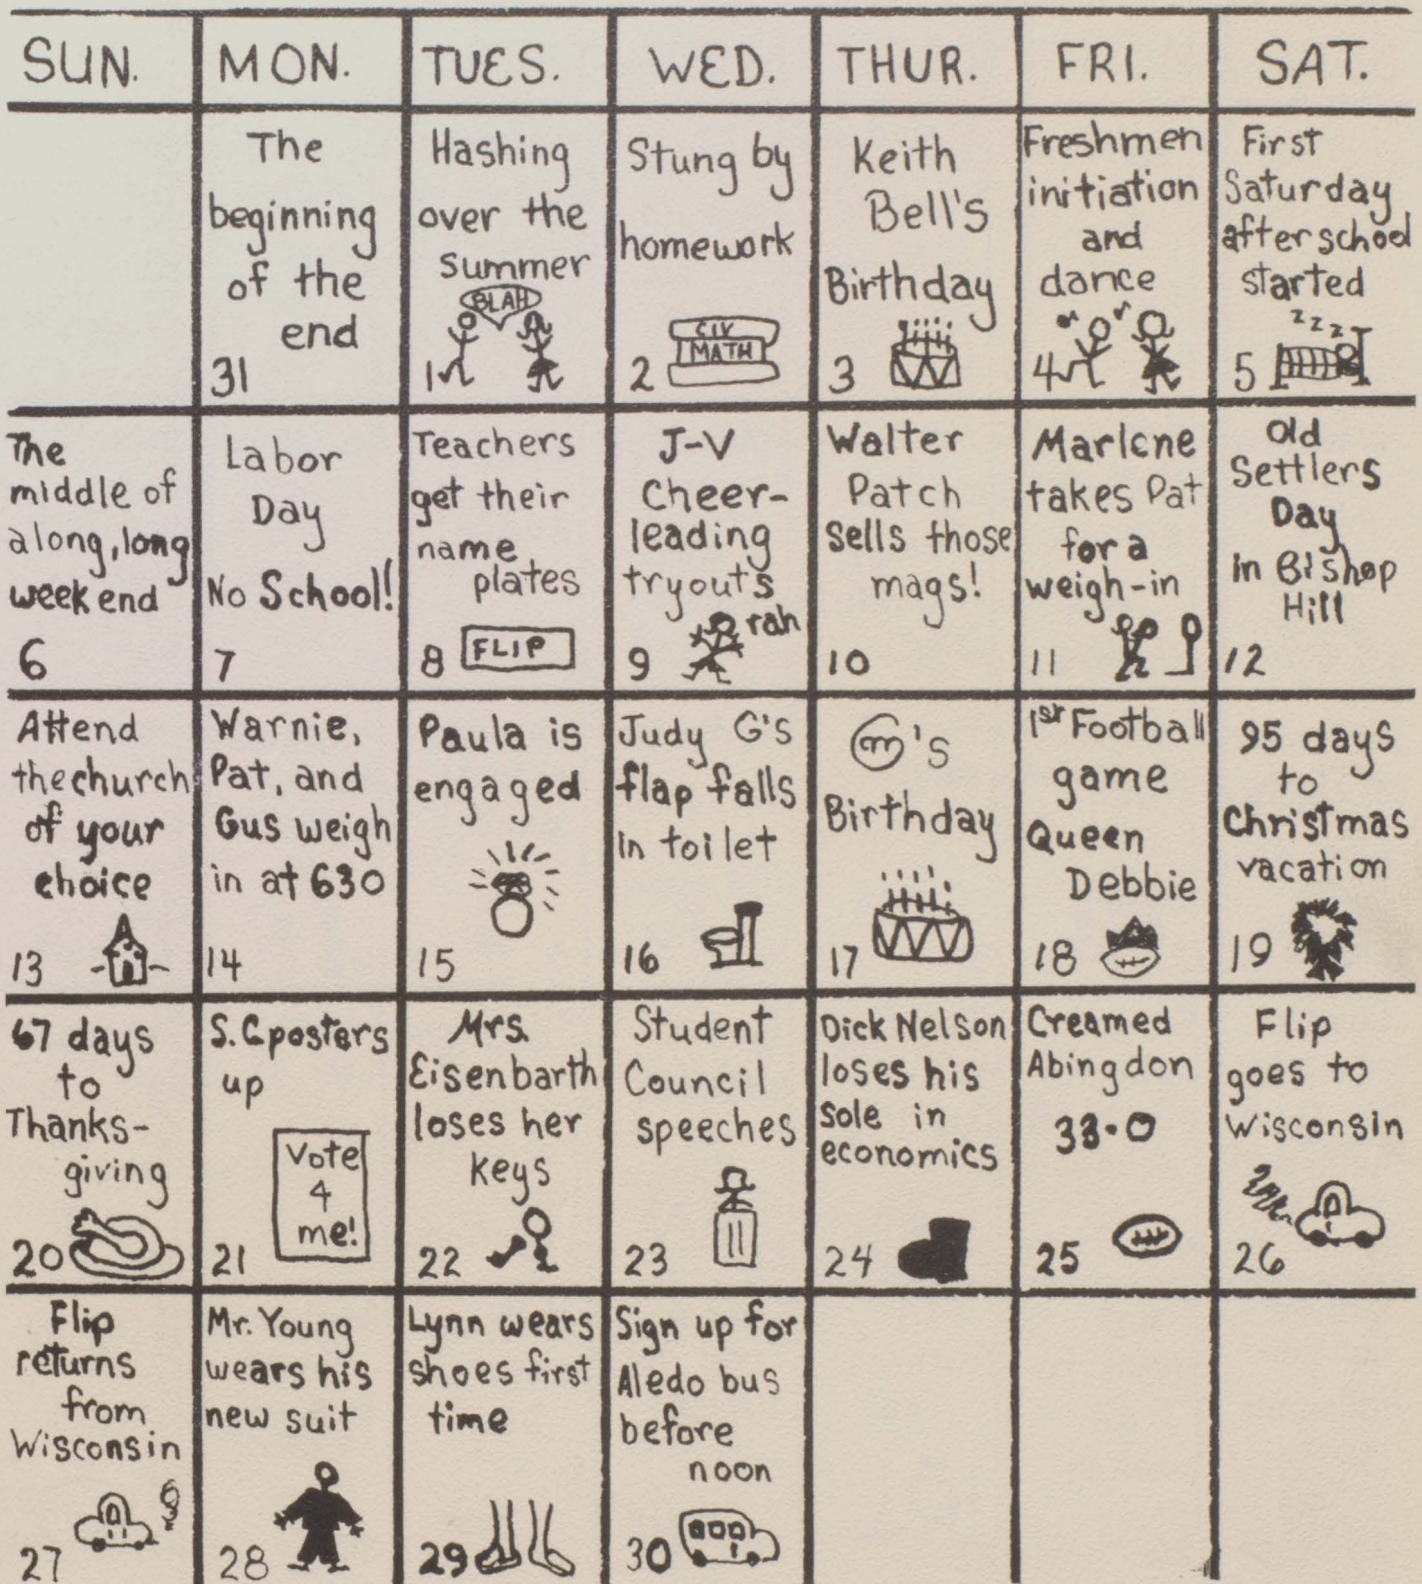 SUN.
MON.
TUES.
WED.
THUR.
FRI.
SAT.
The
beginning
of the
end
31
Hashing
over the
summer
BLAH
1
Stung by
homework
CIV
MATH
2
Keith
Bell's
Birthday
3
Freshmen
initiation
and
dance
4
First
Saturday
after school
started
zzzz
5
The
middle of
a long, long
weekend
6
Labor
Day
No School!
7
Teachers
get their
name
plates
FLIP
8
J-V
Cheer-
leading
tryouts
rah
9
Walter
Patch
sells those
mags!
10
Marlene
takes Pat
for a
weigh-in
11
Old
Settlers
Day
in Bishop
Hill
12
Attend
the church
of your
choice
13
Warnie,
Pat, and
Gus weigh
in at 630
14
Paula is
engaged
15
Judy G's
flap falls
in toilet
16
m's
Birthday
17
1st Football
game
Queen
Debbie
18
95 days
to
Christmas
vacation
19
67 days
to
Thanks-
giving
20
S.C posters
up
Vote
4
me!
21
Mrs.
Eisenbarth
loses her
keys
22
Student
Council
speeches
23
Dick Nelson
loses his
sole in
economics
24
Creamed
Abingdon
33-0
25
Flip
goes to
Wisconsin
26
Flip
returns
from
Wisconsin
27
Mr. Young
wears his
new suit
28
Lynn wears
shoes first
time
29
Sign up for
Aledo bus
before
noon
30